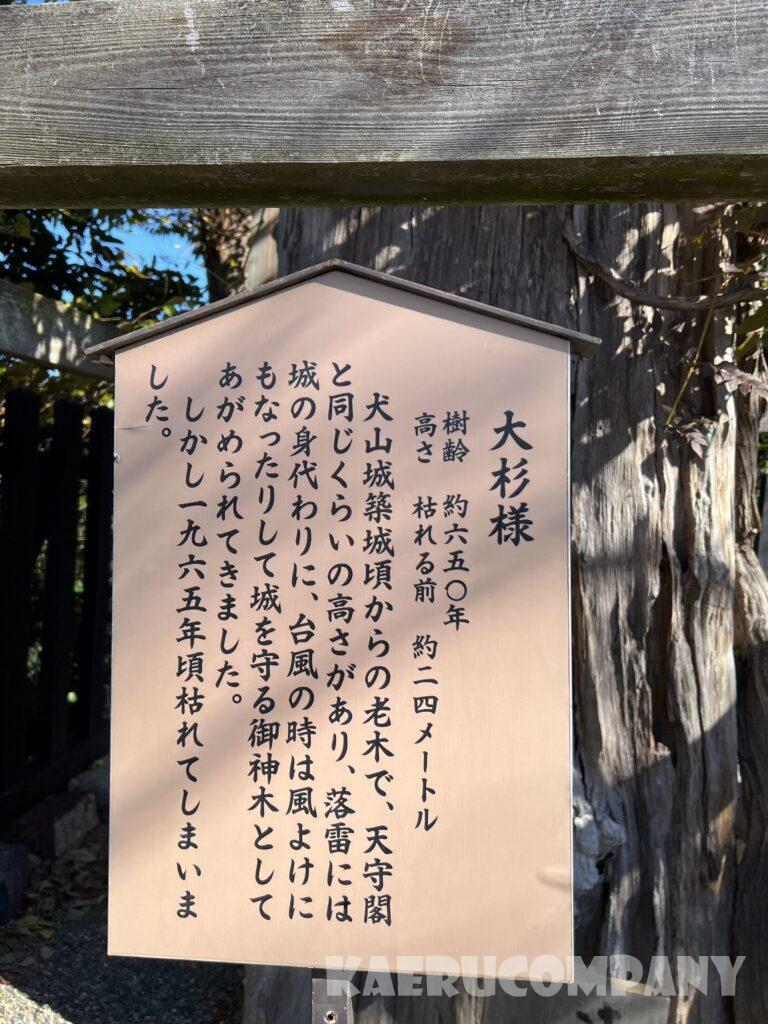 大杉様
樹齢　約六五〇年
高さ　枯れる前　約二四メートル
犬山城築城頃からの老木で、天守閣
と同じくらいの高さがあり、落雷には
城の身代わりに、台風の時は風よけに
もなったりして城を守る御神木として
あがめられてきました。
しかし一九六五年頃枯れてしまいま
した。
KAERUCOMPANY